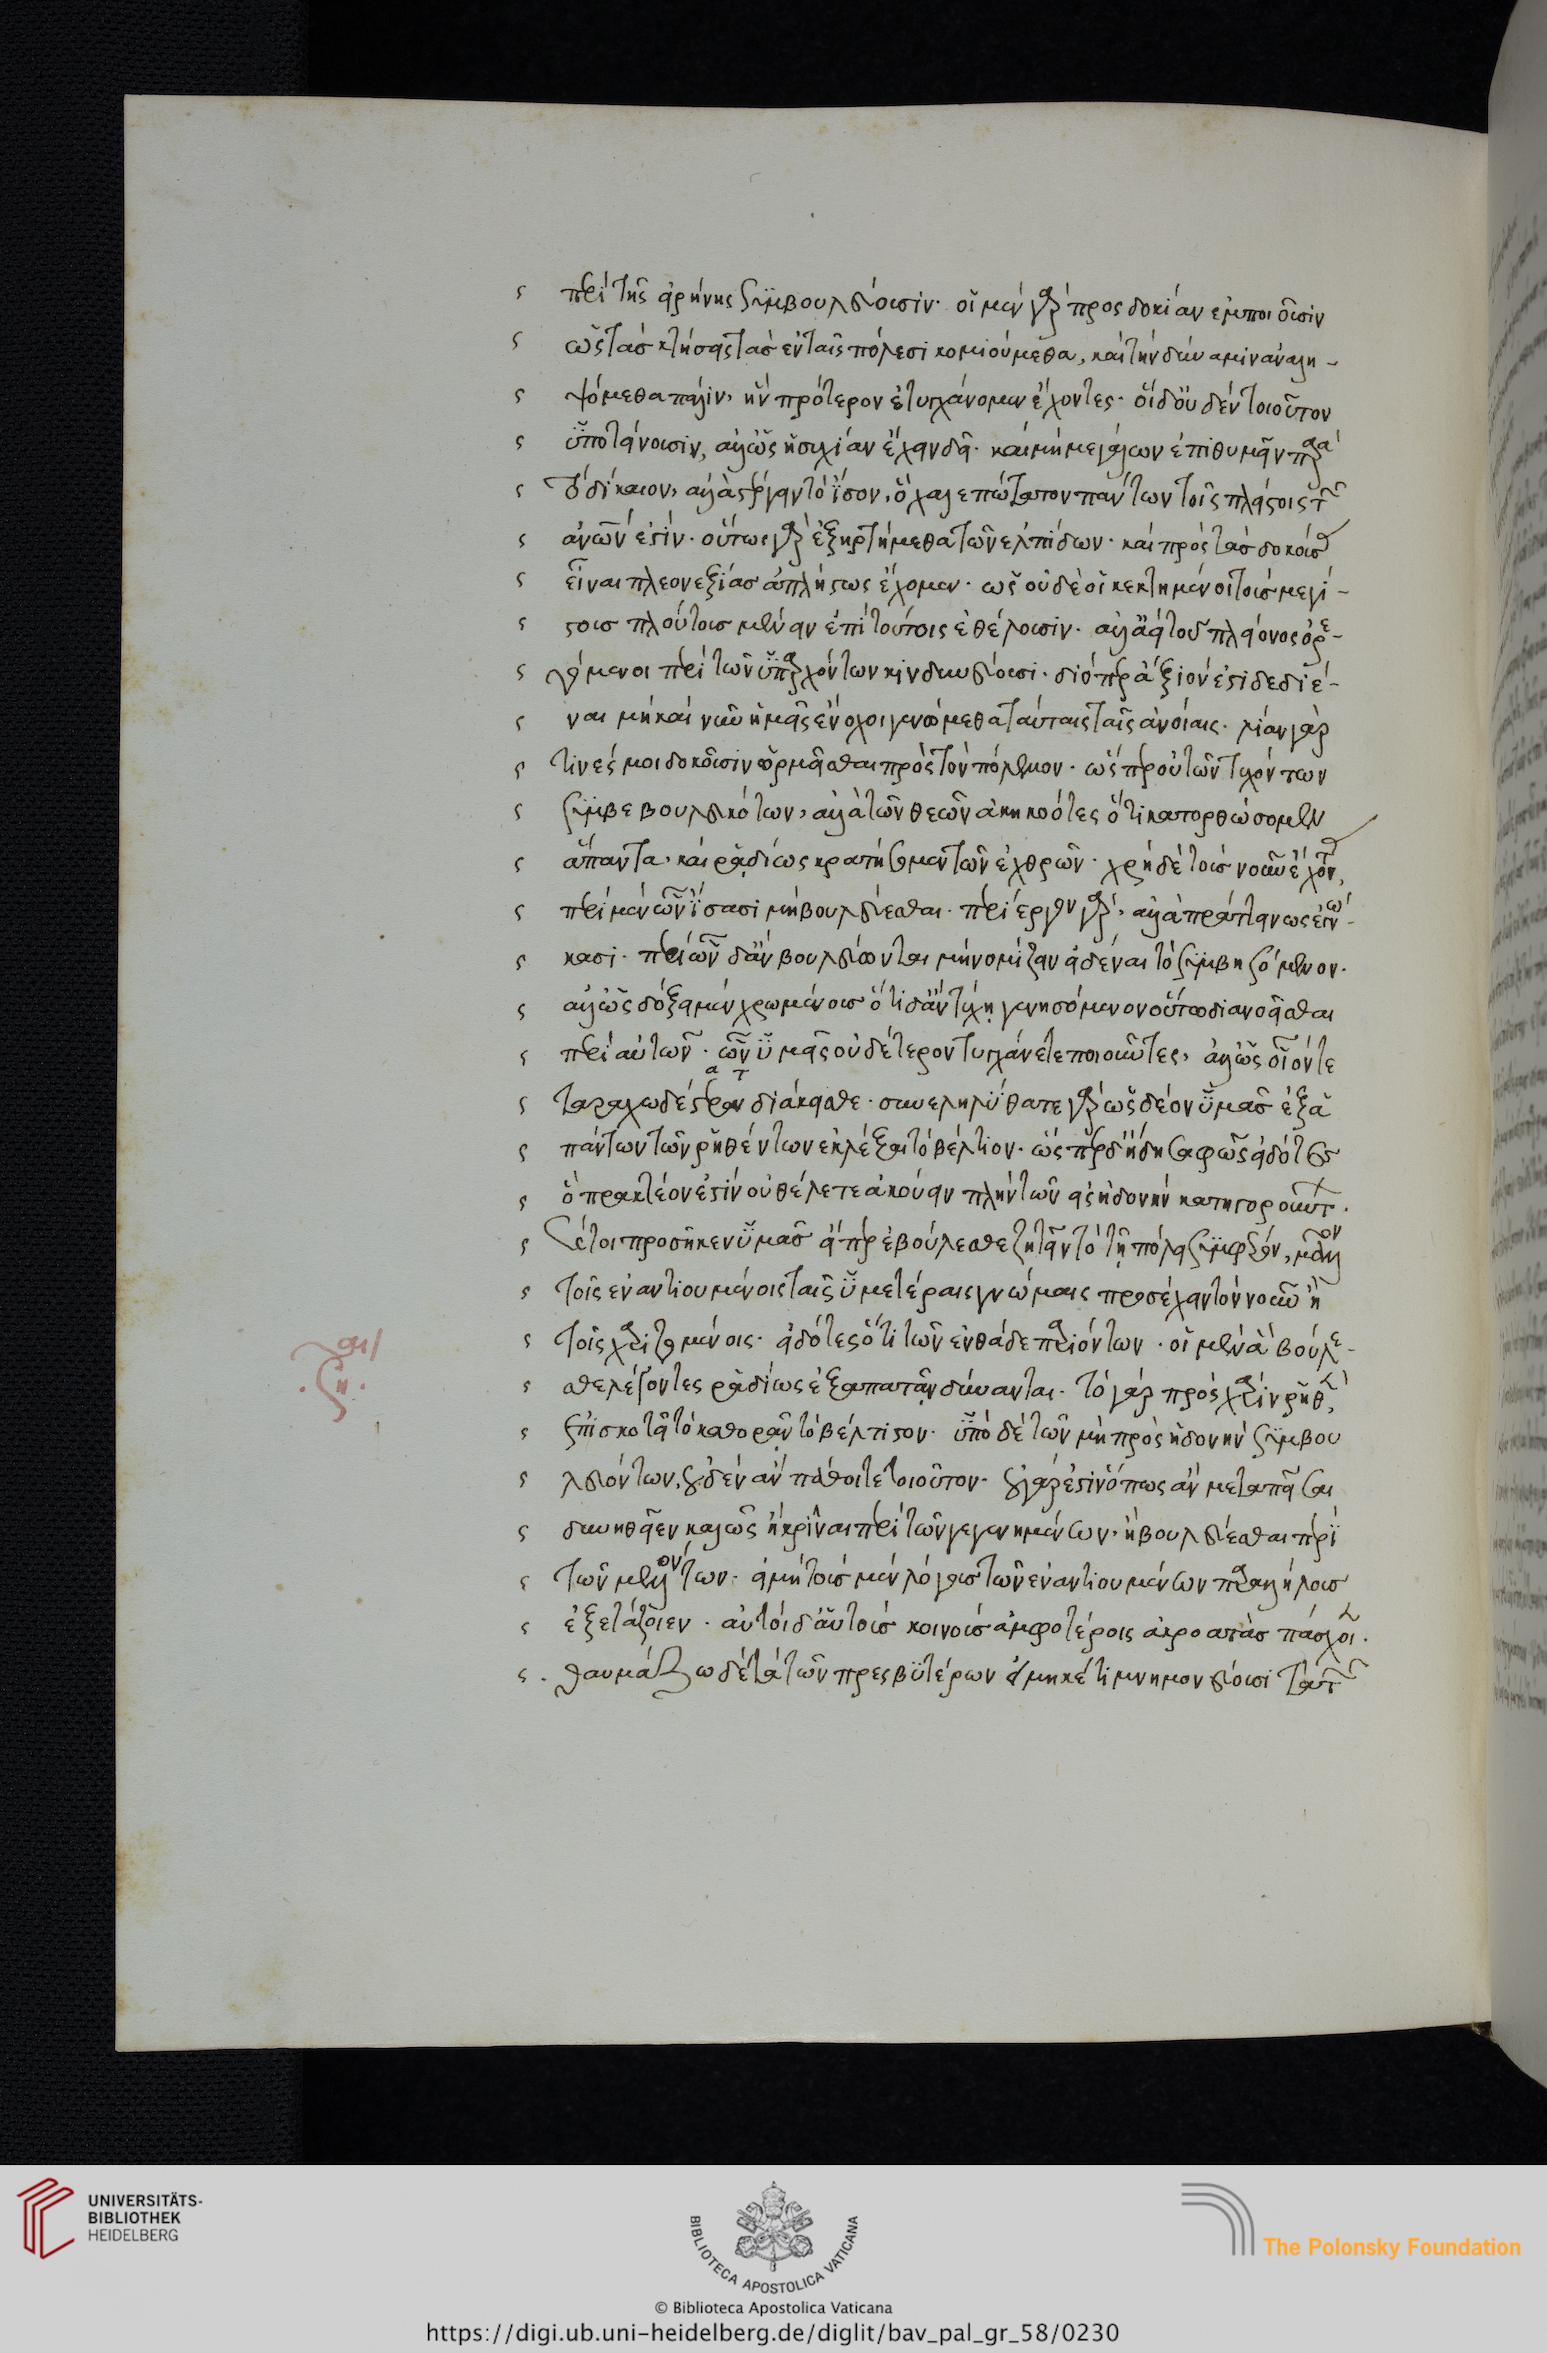 περὶ τῆς εἰρήνης συμβουλεύουσιν· οἱ μὲν γὰρ προσδοκίαν ἐμποιοῦσιν
ὡς τὰς κτήσεις τὰς ἐν ταῖς πόλεσι κομιούμεθα, καὶ τὴν δύναμιν ἀναλη-
ψόμεθα πάλιν, ἣν πρότερον ἐτυγχάνομεν ἔχοντες· οἱ δ' οὐδὲν τοιοῦτον
ὑποτείνουσιν, ἀλλ' ὡς ἡσυχίαν ἔχειν δεῖ· καὶ μὴ μεγάλων ἐπιθυμεῖν παρὰ
τὸ δίκαιον, ἀλλὰ στέργειν τὸ ἴσον, ὃ χαλεπώτατον πάντων τοῖς πλείστοις τῶν
ἀνων ἐστίν· οὕτως γὰρ ἐξηρτήμεθα τῶν ἐλπίδων· καὶ πρὸς τὰς δοκούσας
εἶναι πλεονεξίας ἀπλήστως ἔχομεν· ὡς οὐδὲ οἱ κεκτημένοι τοὺς μεγί-
στους πλούτους μένειν ἐπὶ τούτοις ἐθέλουσιν· ἀλλ' ἀεὶ τοῦ πλείονος ὀρε-
γόμενοι περὶ τῶν ὑπαρχόντων κινδυνεύουσι· διόπερ ἄξιόν ἐστι δεδιέ-
ναι μὴ καὶ νῦν ἡμεῖς ἔνοχοι γενώμεθα ταύταις ταῖς ἀνοίαις· λίαν γάρ
τινές μοι δοκοῦσιν ὁρμᾶσθαι πρὸς τὸν πόλεμον· ὥσπερ οὐ τῶν τυχόντων
συμβεβουλευκότων, ἀλλὰ τῶν θεῶν ἀκηκοότες ὅτι κατορθώσομεν
ἅπαντα, καὶ ῥᾳδίως κρατήσομεν τῶν ἐχθρῶν· χρὴ δὲ τοὺς νοῦν ἔχοντας,
περὶ μὲν ὧν ἴσασι μὴ βουλεύεσθαι· περίεργον γὰρ, ἀλλὰ πράττειν ὡς ἐγνώ-
κασι· περὶ ὧν δ' ἂν βουλεύωνται μὴ νομίζειν εἰδέναι τὸ συμβησόμενον·
ἀλλ' ὡς δόξῃ μὲν χρωμένους ὅ τι δ' ἂν τύχῃ γενησόμενον οὕτω διανοεῖσθαι
περὶ αὐτῶν· ὧν ὑμεῖς οὐδέτερον τυγχάνετε ποιοῦντες, ἀλλ' ὡς οἷόν τε
ταραχωδέστατα διάκεισθε· συνεληλύθατε γὰρ ὡς δέον ὑμᾶς ἐξ ἁ
πάντων τῶν ῥηθέντων ἐκλέξαι τὸ βέλτιον· ὥσπερ δ' ἤδη σαφῶς εἰδότες
ὃ πρακτέον ἐστὶν οὐ θέλετε ἀκούειν πλὴν τῶν εἰς ἡδονὴν κατηγορούντων·
καίτοι προσῆκεν ὑμᾶς εἴπερ ἐβούλεσθε ζητεῖν τὸ τῇ πόλει συμφέρον, μᾶλλον
τοῖς ἐναντιουμένοις ταῖς ὑμετέραις γνώμαις προσέχειν τὸν νοῦν ἢ
τοῖς χαριζομένοις· εἰδότες ὅτι τῶν ἐνθάδε παριόντων· οἱ μὲν ἃ βούλε-
σθε λέγοντες ῥᾳδίως ἐξαπατᾶν δύνανται· τὸ γὰρ πρὸς χάριν ῥηθὲν,
ἐπισκοτεῖ τὸ καθορᾶν τὸ βέλτιστον· ὑπὸ δὲ τῶν μὴ πρὸς ἡδονὴν συμβου
λευόντων, οὐδὲν ἂν πάθοιτε τοιοῦτον· οὐ γάρ ἐστιν ὅπως ἂν μεταπεῖσαι
δυνηθεῖεν καλῶς ἢ κρῖναι περὶ τῶν γεγενημένων, ἢ βουλεύεσθαι περὶ
τῶν μελλόντων· εἰ μὴ τοὺς μὲν λόγους τῶν ἐναντιουμένων παραλλήλους
ἐξετάζοιεν· αὐτοὶ δ' αὑτοὺς κοινοὺς ἀμφοτέροις ἀκροατὰς πάσχοιεν·
θαυμάζω δὲ τὰ τῶν πρεσβυτέρων εἰ μηκέτι μνημονεύουσι ταῦτ
UNIVERSITÄTS-
BIBLIOTHEK
HEIDELBERG
BIBLIOTECA APOSTOLICA VATICANA
The Polonsky Foundation
© Biblioteca Apostolica Vaticana
https://digi.ub.uni-heidelberg.de/diglit/bav_pal_gr_58/0230